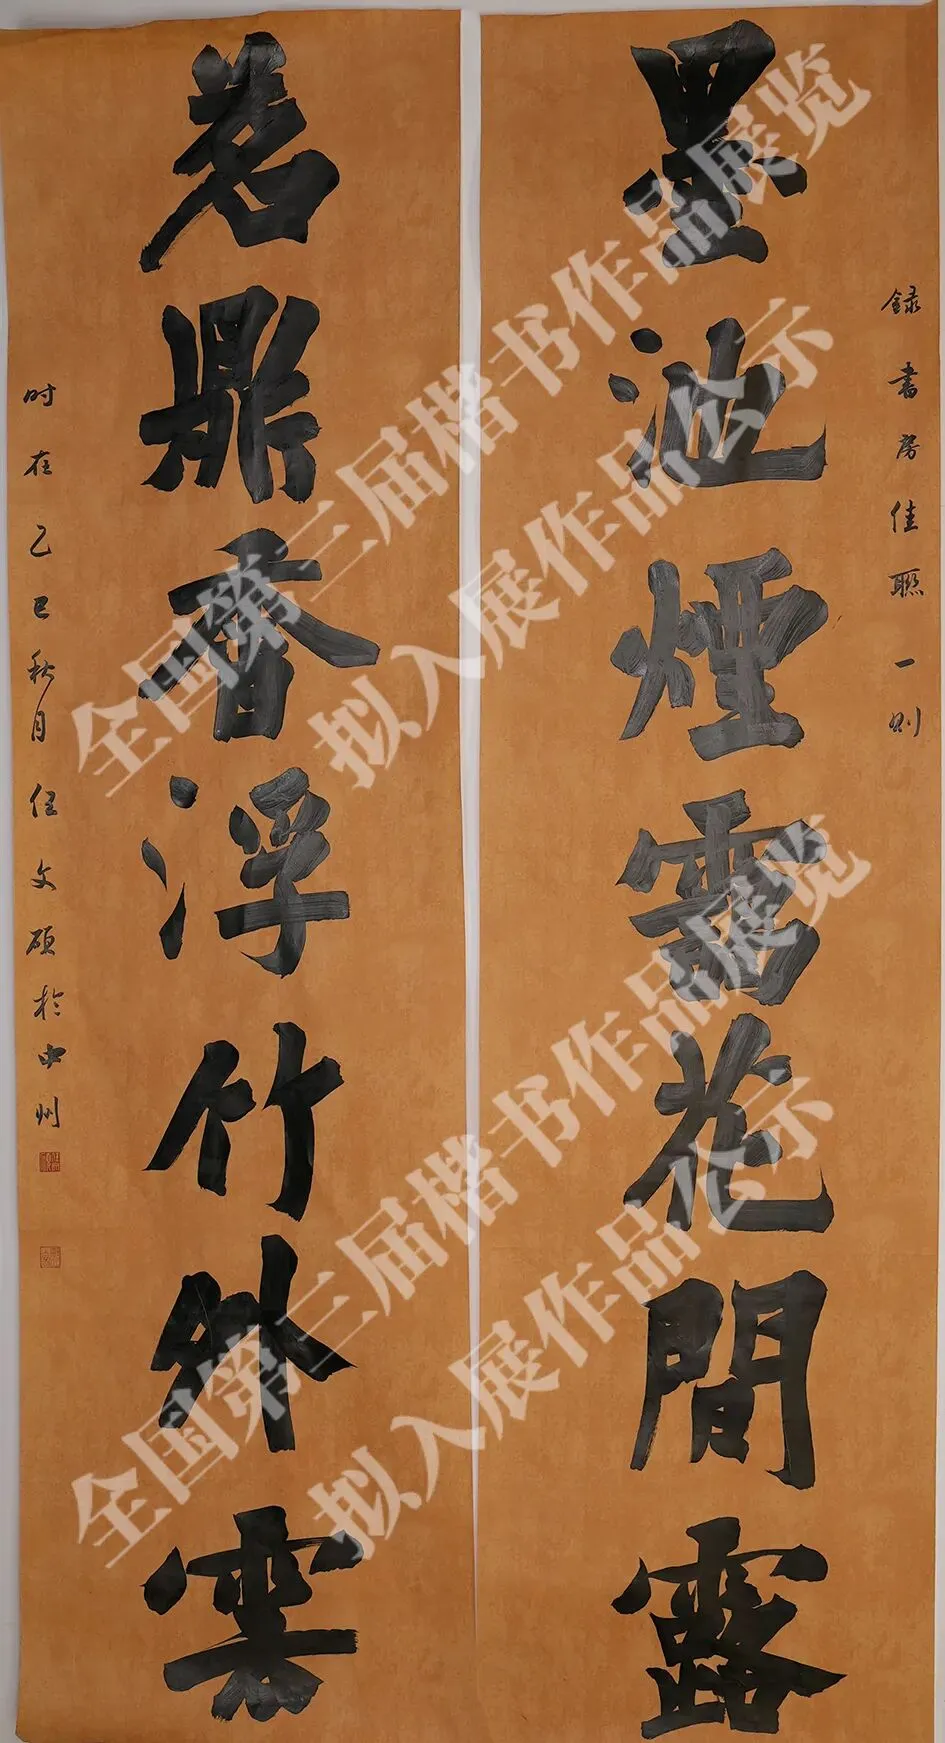 録書房佳聯一则
墨池煙靄花間露
茗鼎香浮竹外雲
时在乙巳秋月任文硕於中州
全国第三届楷书作品展览
拟入展作品公示
全国第三届楷书作品展览
拟入展作品公示